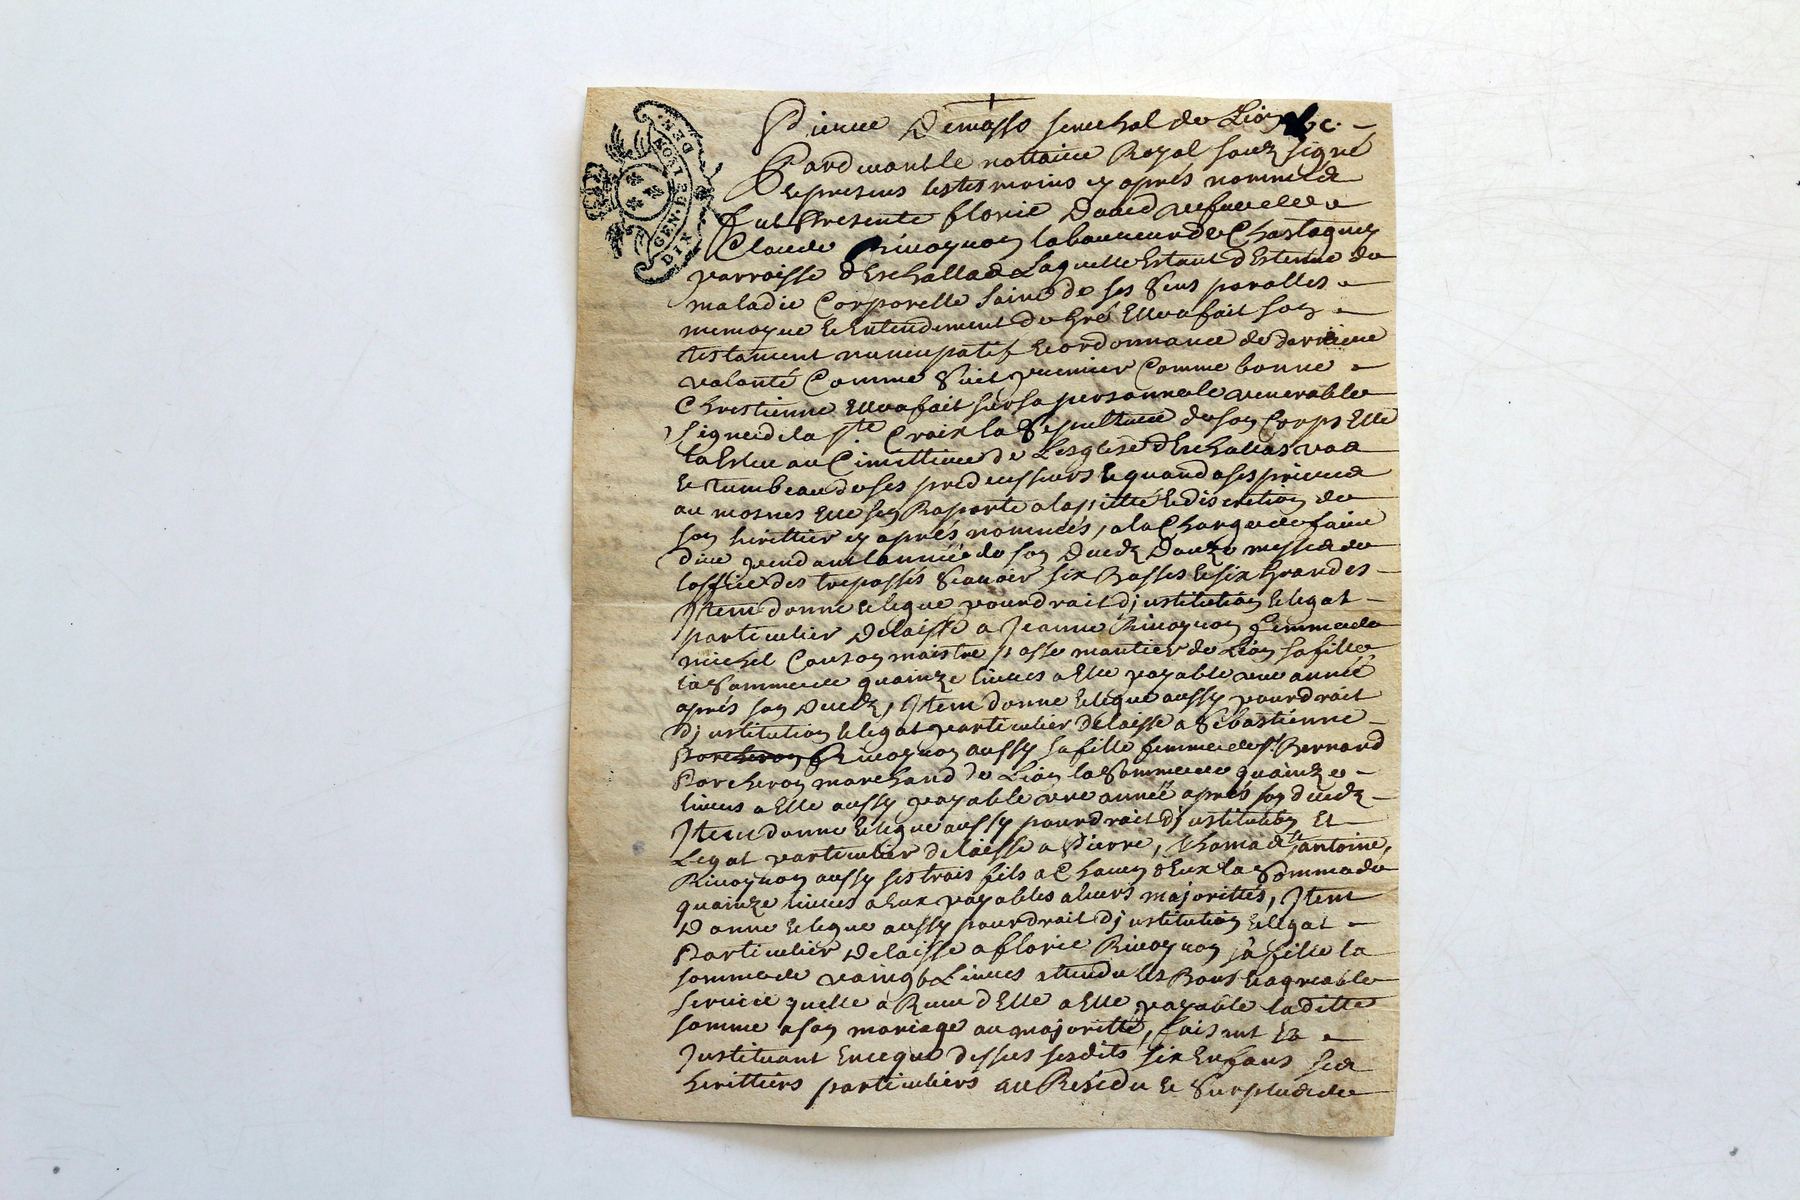 GEN. ET LYON
DIX DEN.
Pierre Demasso senechal de Lion &c.
Pardevant le nottaire Royal souz signé
et presens les tesmoins cy aprés nommes
fut Presente florie David vefve de
Claude Rivoyron laboureur de Chastagney
parroisse d'Eschallas Laquelle Estant d'Estenue de
maladie Corporelle saine de ses Sens parolles
memoyre et Entendement de gré Elle a fait son
testament nuncupatif et ordonnance de derniere
volonté Comme Suit premier Comme bonne
Chrestienne Elle a fait sur sa personne le venerable
signe de la Ste Croix la Sepulture de son Corps Elle
la Esleu au Cimettiere de Lesglise d'Eschallas vas
et tumbeau de ses predecesseurs et quand a ses prieres
aumosnes Elle sen Raporte a la pitté et discretion de
son herittier cy aprés nommés, a la Charge de faire
dire pendant lannéé de son Decedz Douze messes de
loffice des trepassés Scavoir six Basses et six Grandes
Item donne et legue pour droit d'justitution et legat
particulier Delaisse a Jeanne Rivoyron femme de
michel Couson maistre passemantier de Lion sa fille
la Somme de quainze livres a Elle payable une annéé
aprés son Decedz, Item donne et legue aussy pour droit
d'justitution et legat particulier delaisse a Sebastienne
Porcheron Rivoyron aussy sa fille femme de Sr Bernard
Porcheron marchand de Lion la Somme de quainze
livres a Elle aussy payable une annéé aprés son decedz
Item donne et legue aussy pour droit d'justitution Et
Legat particulier delaisse a Pierre, Thomas et antoine,
Rivoyron aussy ses trois fils a Chacun d'Eux la Somme de
quainze livres a Eux payables a leurs majorittés, Item
Donne et legue aussy pour droit d'justitution et legat
Particulier Delaisse a florie Rivoyron sa fille la
somme de vaingt Livres attendu les Bons et agreable
service quelle a Receu d'Elle a Elle payable laditte
somme a son mariage ou majoritté, faisant Et
Justituant En ce que dessus sesdits six Enfans ses
herittiers particuliers au Residu et Surplus de